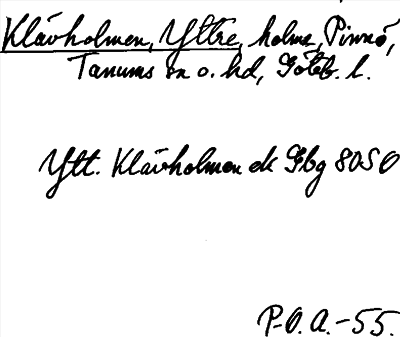 Klåvholmen, Yttre, holme, Pinnö,
Tanums sn o. hd, Göteb. l.
Ytt. Klåvholmen ek Gbg 8050
P-O. A.-55.